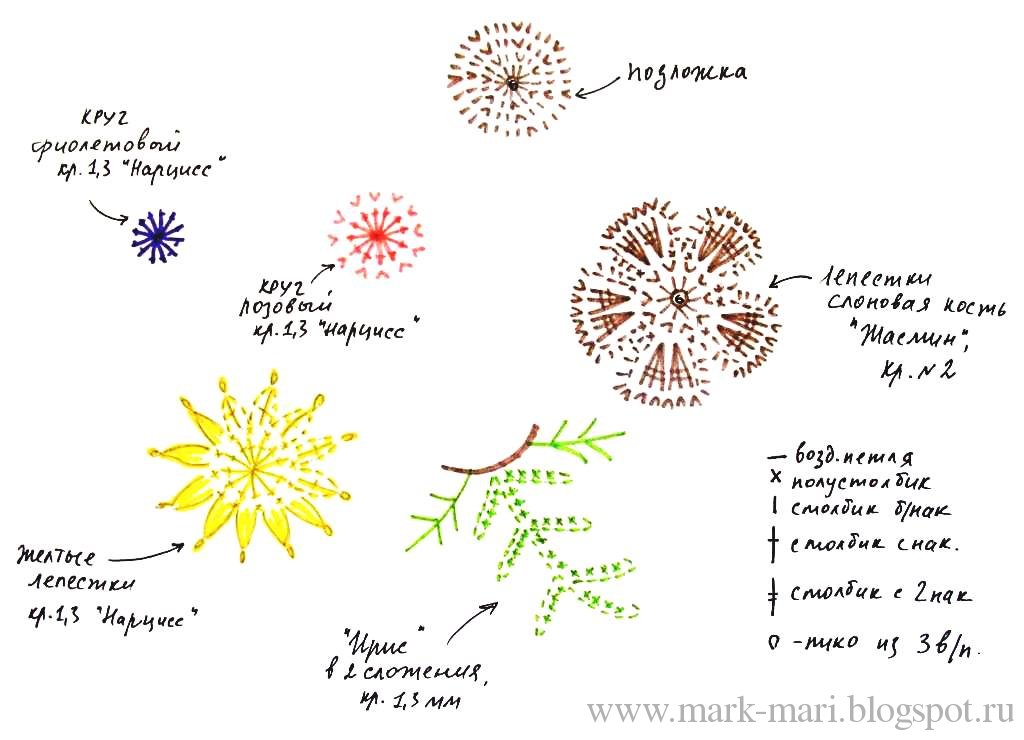 позложка
круг
фиолетовый
кр. 1,3 "Нарцисс"
круг
розовый
кр. 1,3 "Нарцисс"
лепестки
слоновая кость
"Жасмин",
кр. №2
6
6
Желтые
лепестки
кр. 1,3 "Нарцисс"
"Ирис"
в 2 сложения,
кр. 1,3 мм
— возд. петля
x полустолбик
столбик б/нак
столбик с нак.
столбик с 2 нак
- пико из 3 в/п.
www.mark-mari.blogspot.ru